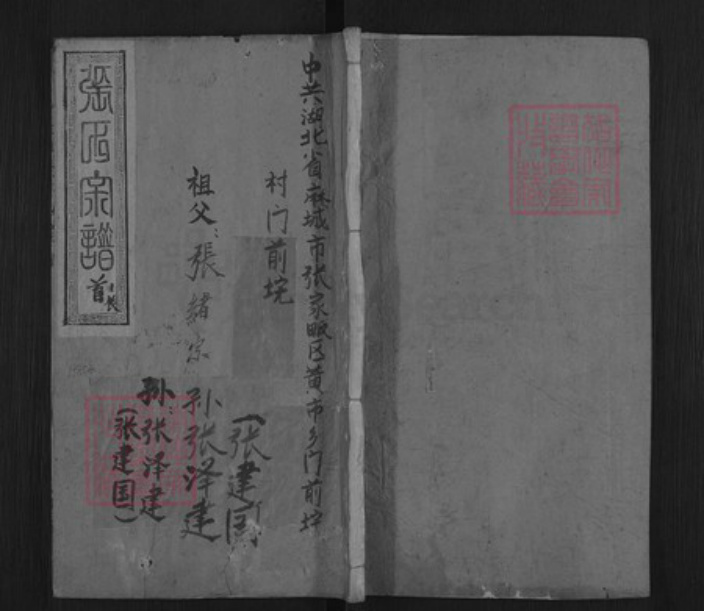 中共湖北省麻城市张家畈区黄市乡门前垸
村门前垸
祖父：張緒宗
孙张泽建
（张建国）
孙：张泽建
（张建国）
張氏宗譜
首